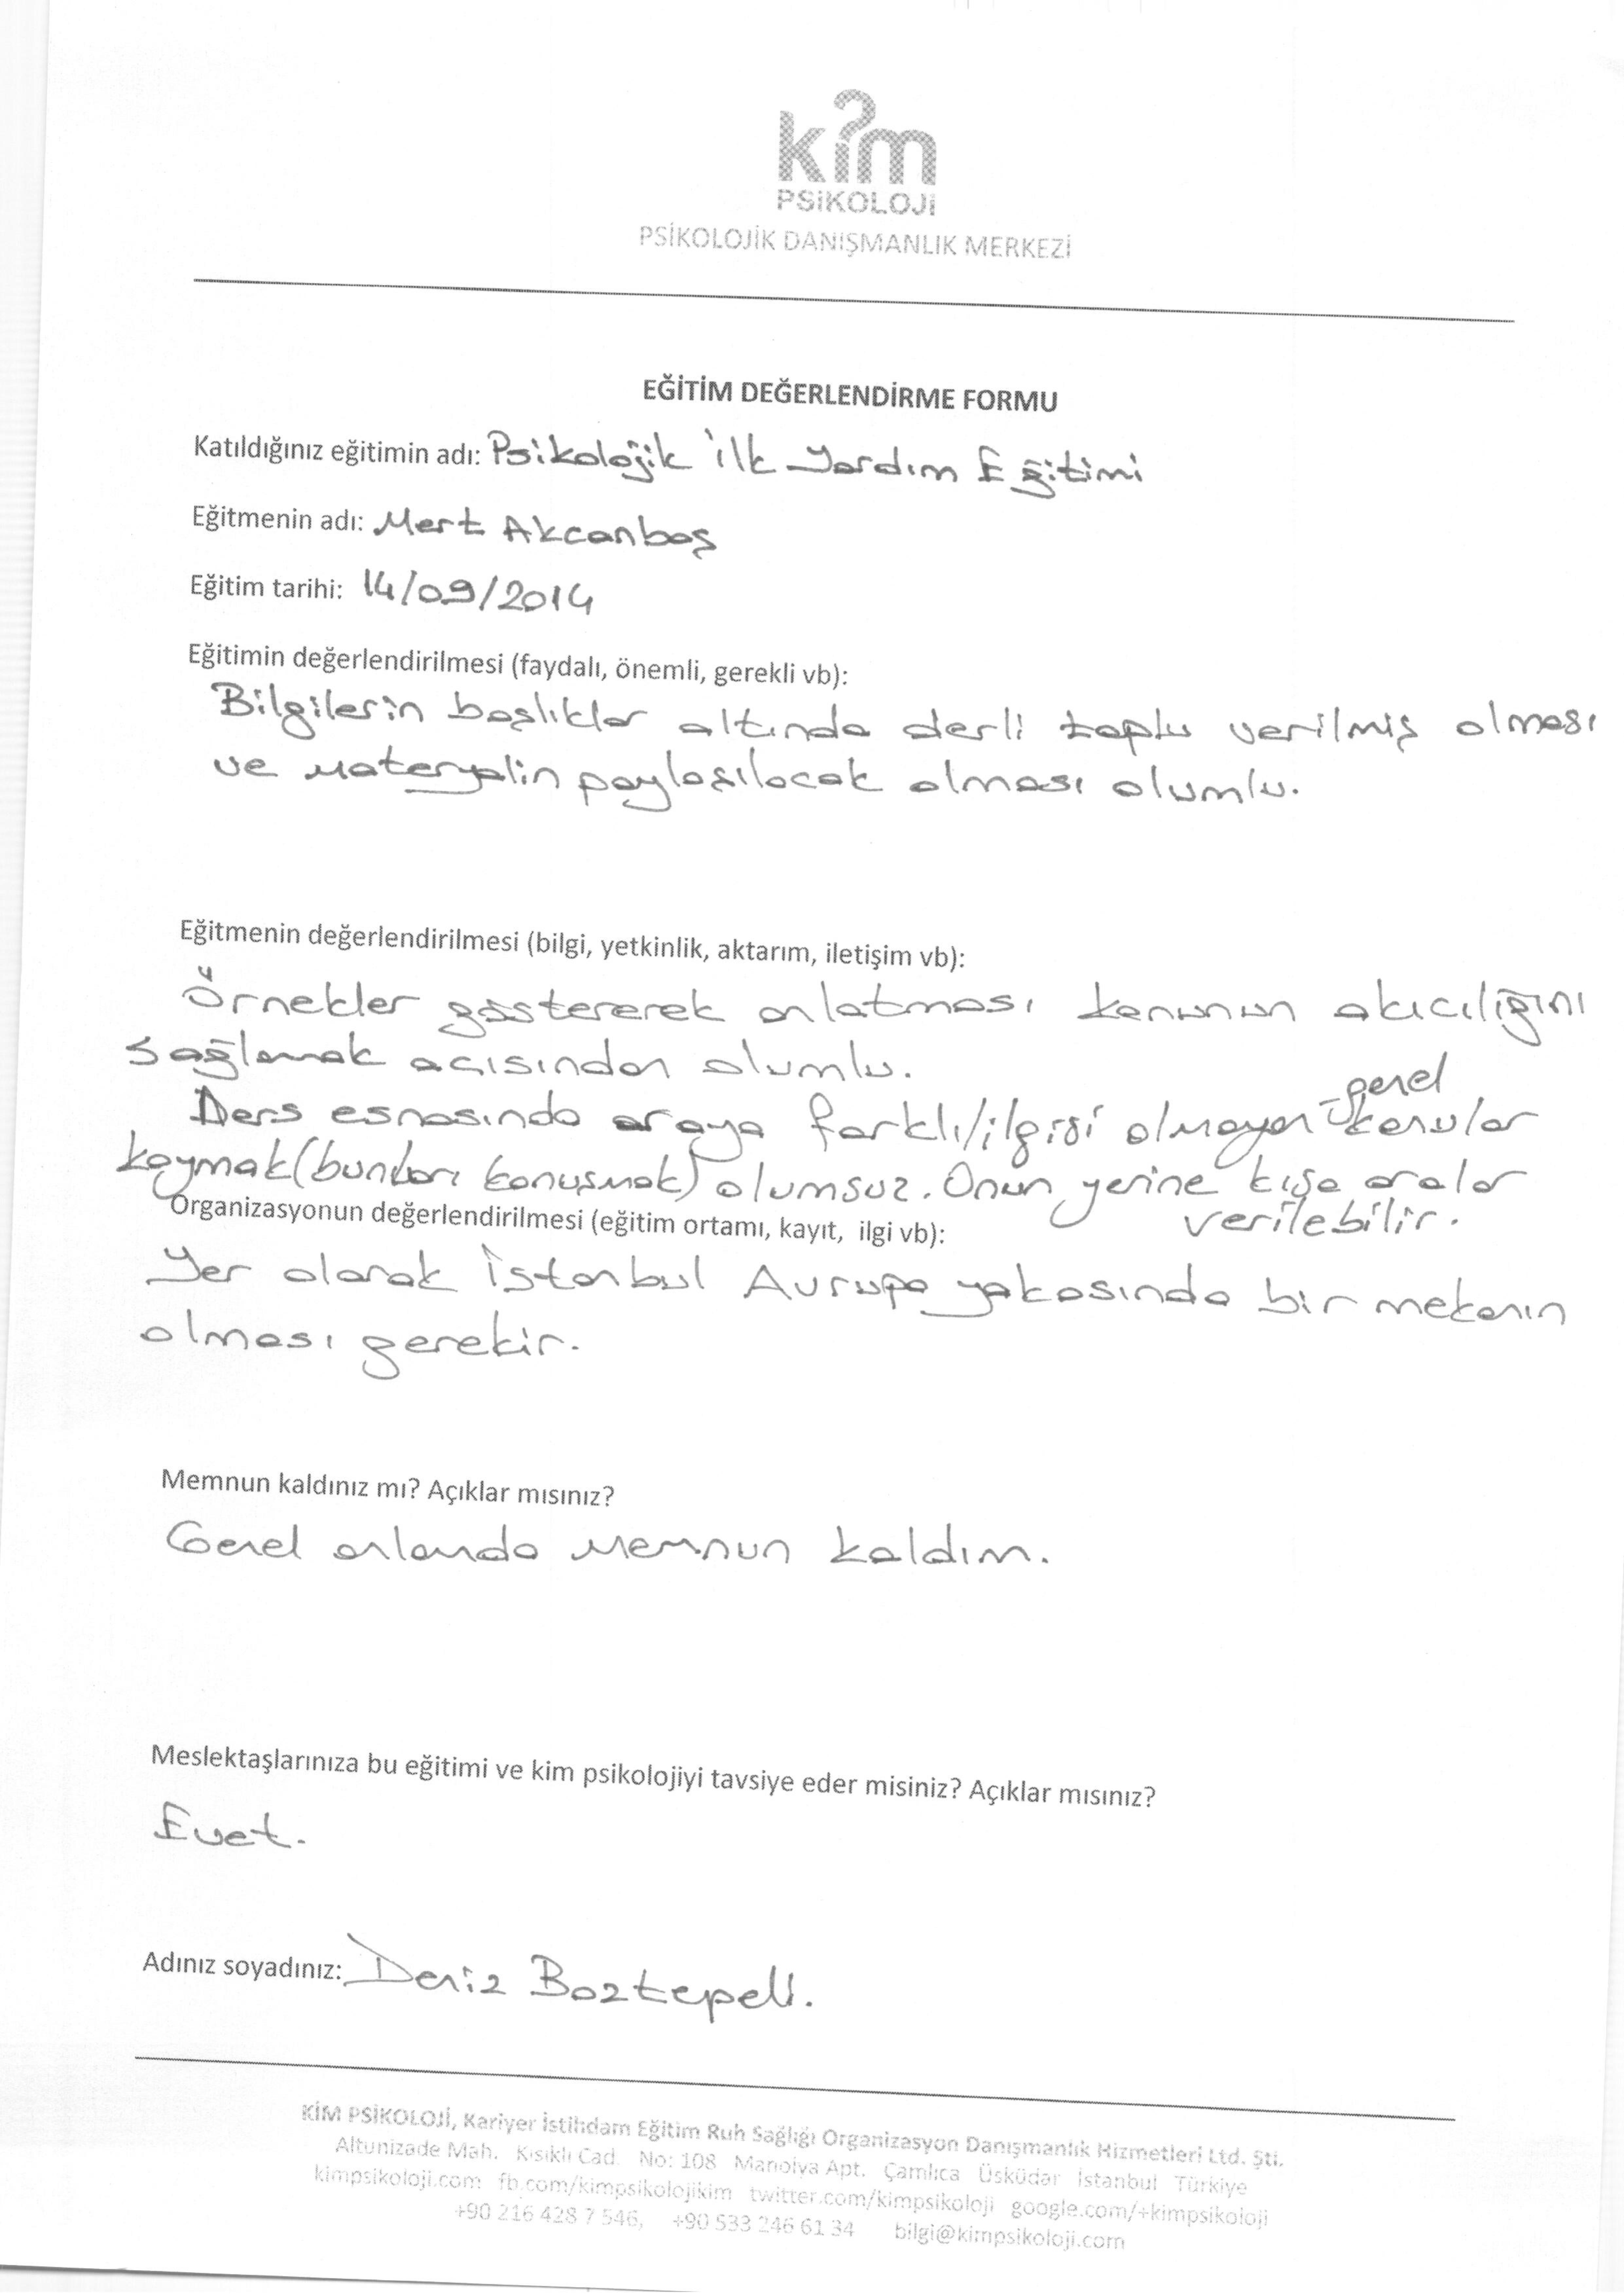 kim
PSİKOLOJİ
PSİKOLOJİK DANIŞMANLIK MERKEZİ
EĞİTİM DEĞERLENDİRME FORMU
Katıldığınız eğitimin adı: Psikolojik ilk Yardım Eğitimi
Eğitmenin adı: Mert Akcanbaş
Eğitim tarihi: 14/09/2014
Eğitimin değerlendirilmesi (faydalı, önemli, gerekli vb):
Bilgilerin başlıklar altında derli toplu verilmiş olması
ve materyalin paylaşılacak olması olumlu.
Eğitmenin değerlendirilmesi (bilgi, yetkinlik, aktarım, iletişim vb):
Örnekler göstererek anlatması konunun akıcılığını
sağlamak açısından olumlu.
Ders esnasında araya farklı/ilgisi olmayan genel konular
koymak (bunları konuşmak) olumsuz. Onun yerine kısa aralar
verilebilir.
Organizasyonun değerlendirilmesi (eğitim ortamı, kayıt, ilgi vb):
Yer olarak İstanbul Avrupa yakasında bir mekanın
olması gerekir.
Memnun kaldınız mı? Açıklar mısınız?
Genel anlamda memnun kaldım.
Meslektaşlarınıza bu eğitimi ve kim psikolojiyi tavsiye eder misiniz? Açıklar mısınız?
Evet.
Adınız soyadınız: Deniz Boztepeli.
KİM PSİKOLOJİ, Kariyer İstihdam Eğitim Ruh Sağlığı Organizasyon Danışmanlık Hizmetleri Ltd. Şti.
Altunizade Mah. Kısıklı Cad. No: 108 Manolya Apt. Çamlıca Üsküdar İstanbul Türkiye
kimpsikoloji.com fb.com/kimpsikolojikim twitter.com/kimpsikoloji google.com/+kimpsikoloji
+90 216 428 7 546, +90 533 246 61 34 bilgi@kimpsikoloji.com